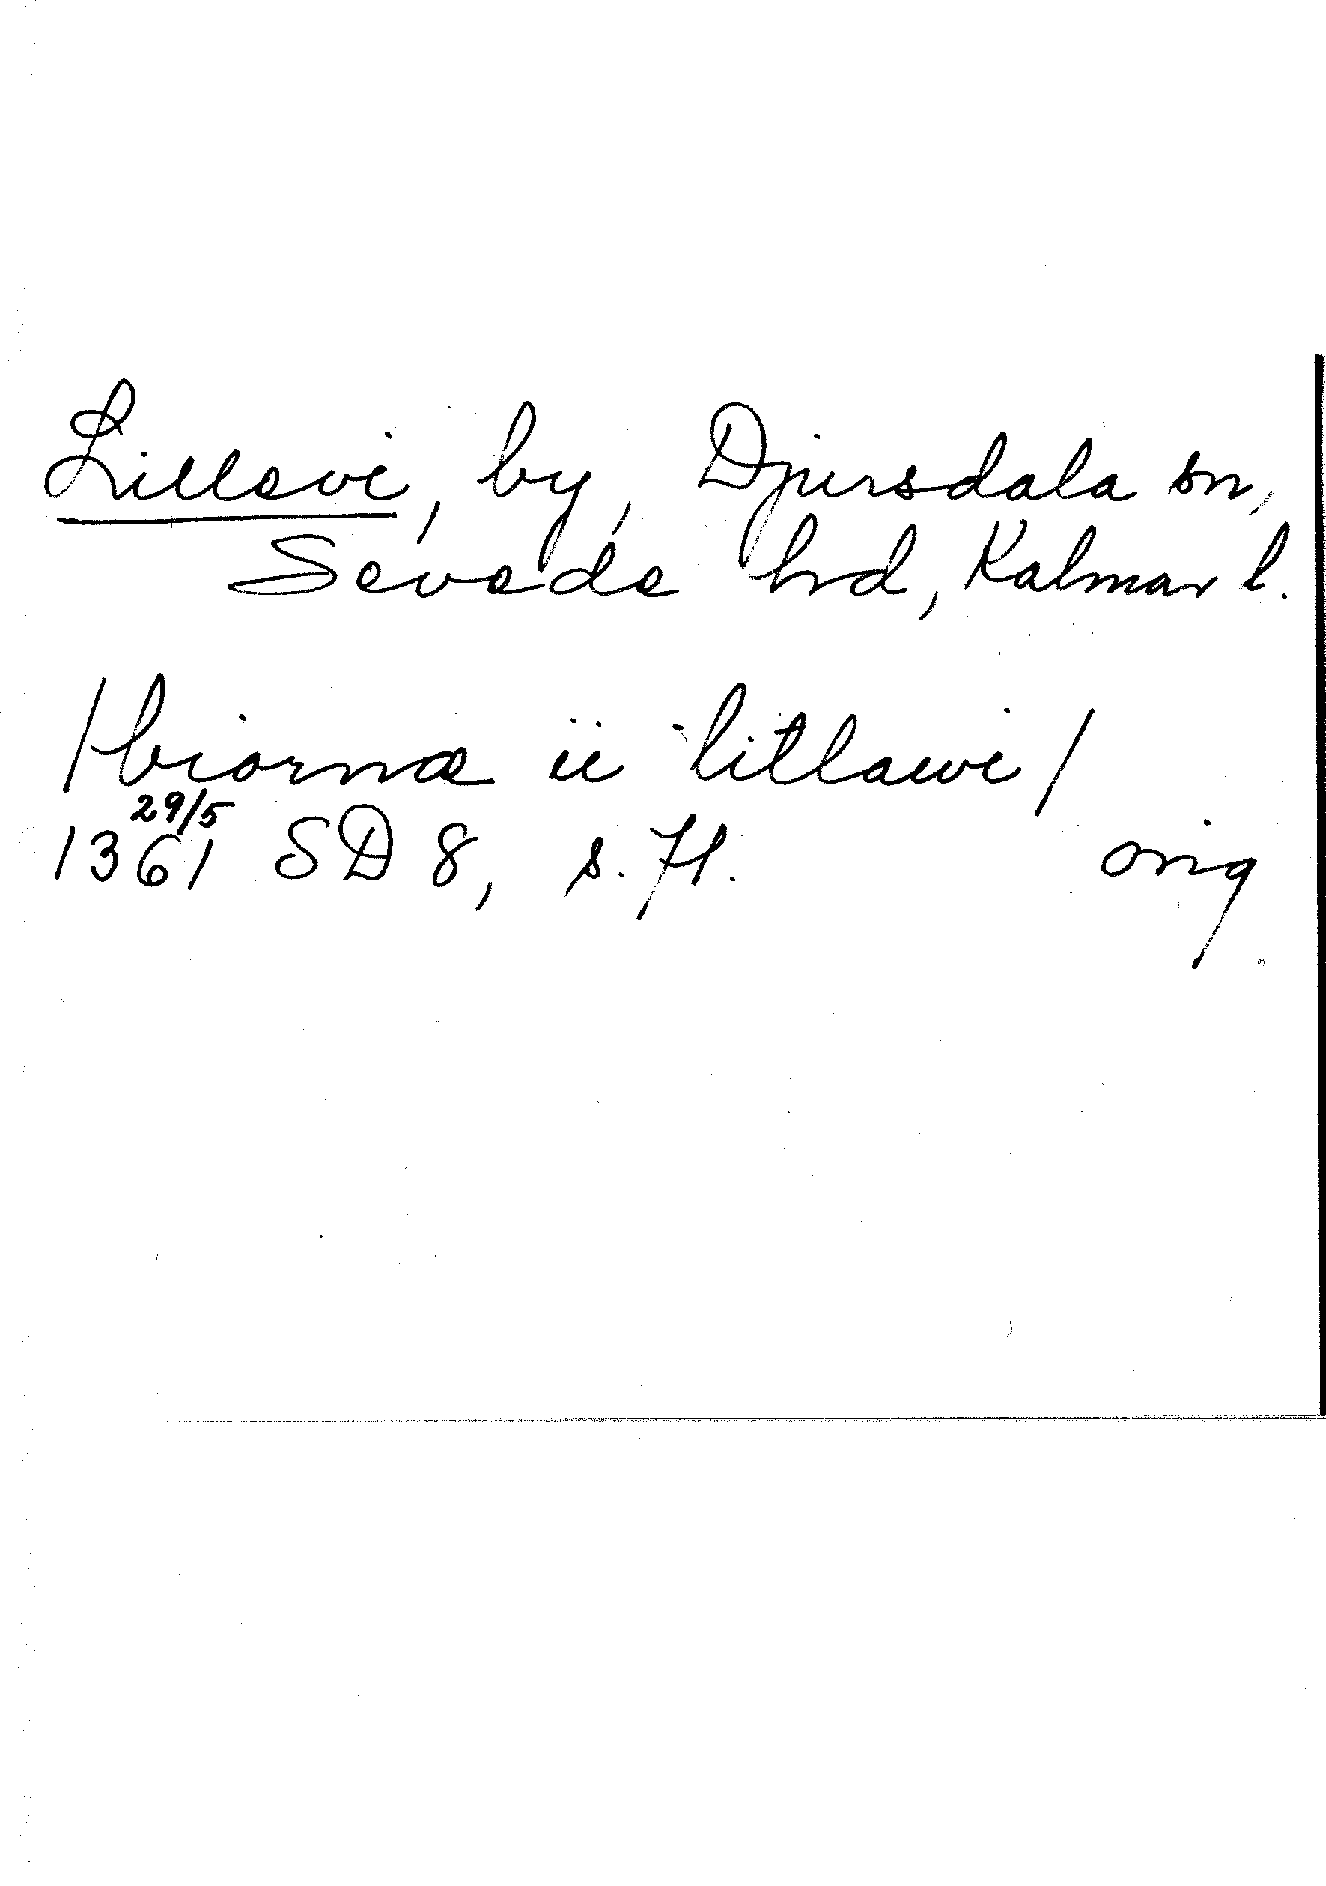 Lillevi, by, Djursdala sn,
Sevede hd, Kalmar l.
/biornæ ii litlawi/
1361 29/5 SD 8, s. 71. orig